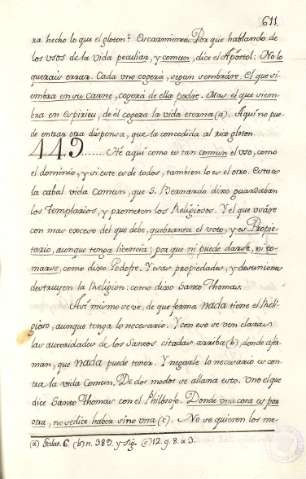 611
ra hecho lo que el gloton? Encaminemo. Por que hablando de
los usos de la vida peculiar, y comun, dice el Apóstol: No lo
querais errar. Cada uno cogerá, segun sembráre. El que si-
embra en su carne, cogerá de ella podre. Mas el que siem-
bra en Espiritu, de él cogerá la vida eterna (a). Aqui no pue-
de entrar otra dispensa, que la concedida al rico gloton.
449 ...... Hé aqui como es tan comun el uso, como
el dominio, y si este es de todos, tambien lo es el otro. Esta es
la cabal vida comun, que S. Bernardo dixo guardaban
los Templarios, y prometen los Religiosos. Y el que usáre
con mas exceso del que debe, quebranta el voto, y es Propie-
tario, aunque tenga licencia; por que ni puede darse, ni to-
marse, como dixo Pedofe. Y estas propiedades, y dominio
destruyen la Religion: como dixo Santo Thomas.
Asi mismo se ve, de que forma nada tiene el Reli-
gioso, aunque tenga lo necesario. Y con eso se ven claras
las autoridades de los Santos citadas arriba (b) donde afir-
man, que nada puede tener. Y negarle lo necesario es con-
tra la vida Comun. De dos modos se allana esto. Uno el que
dice Santo Thomas con el Philósofo. Donde una cosa es por
otra, no se dice haber sino una (c). No se quieren los me-
(a) Galat. 6. (b) n. 389. y sig. (c) 12. q. 8. a 3.